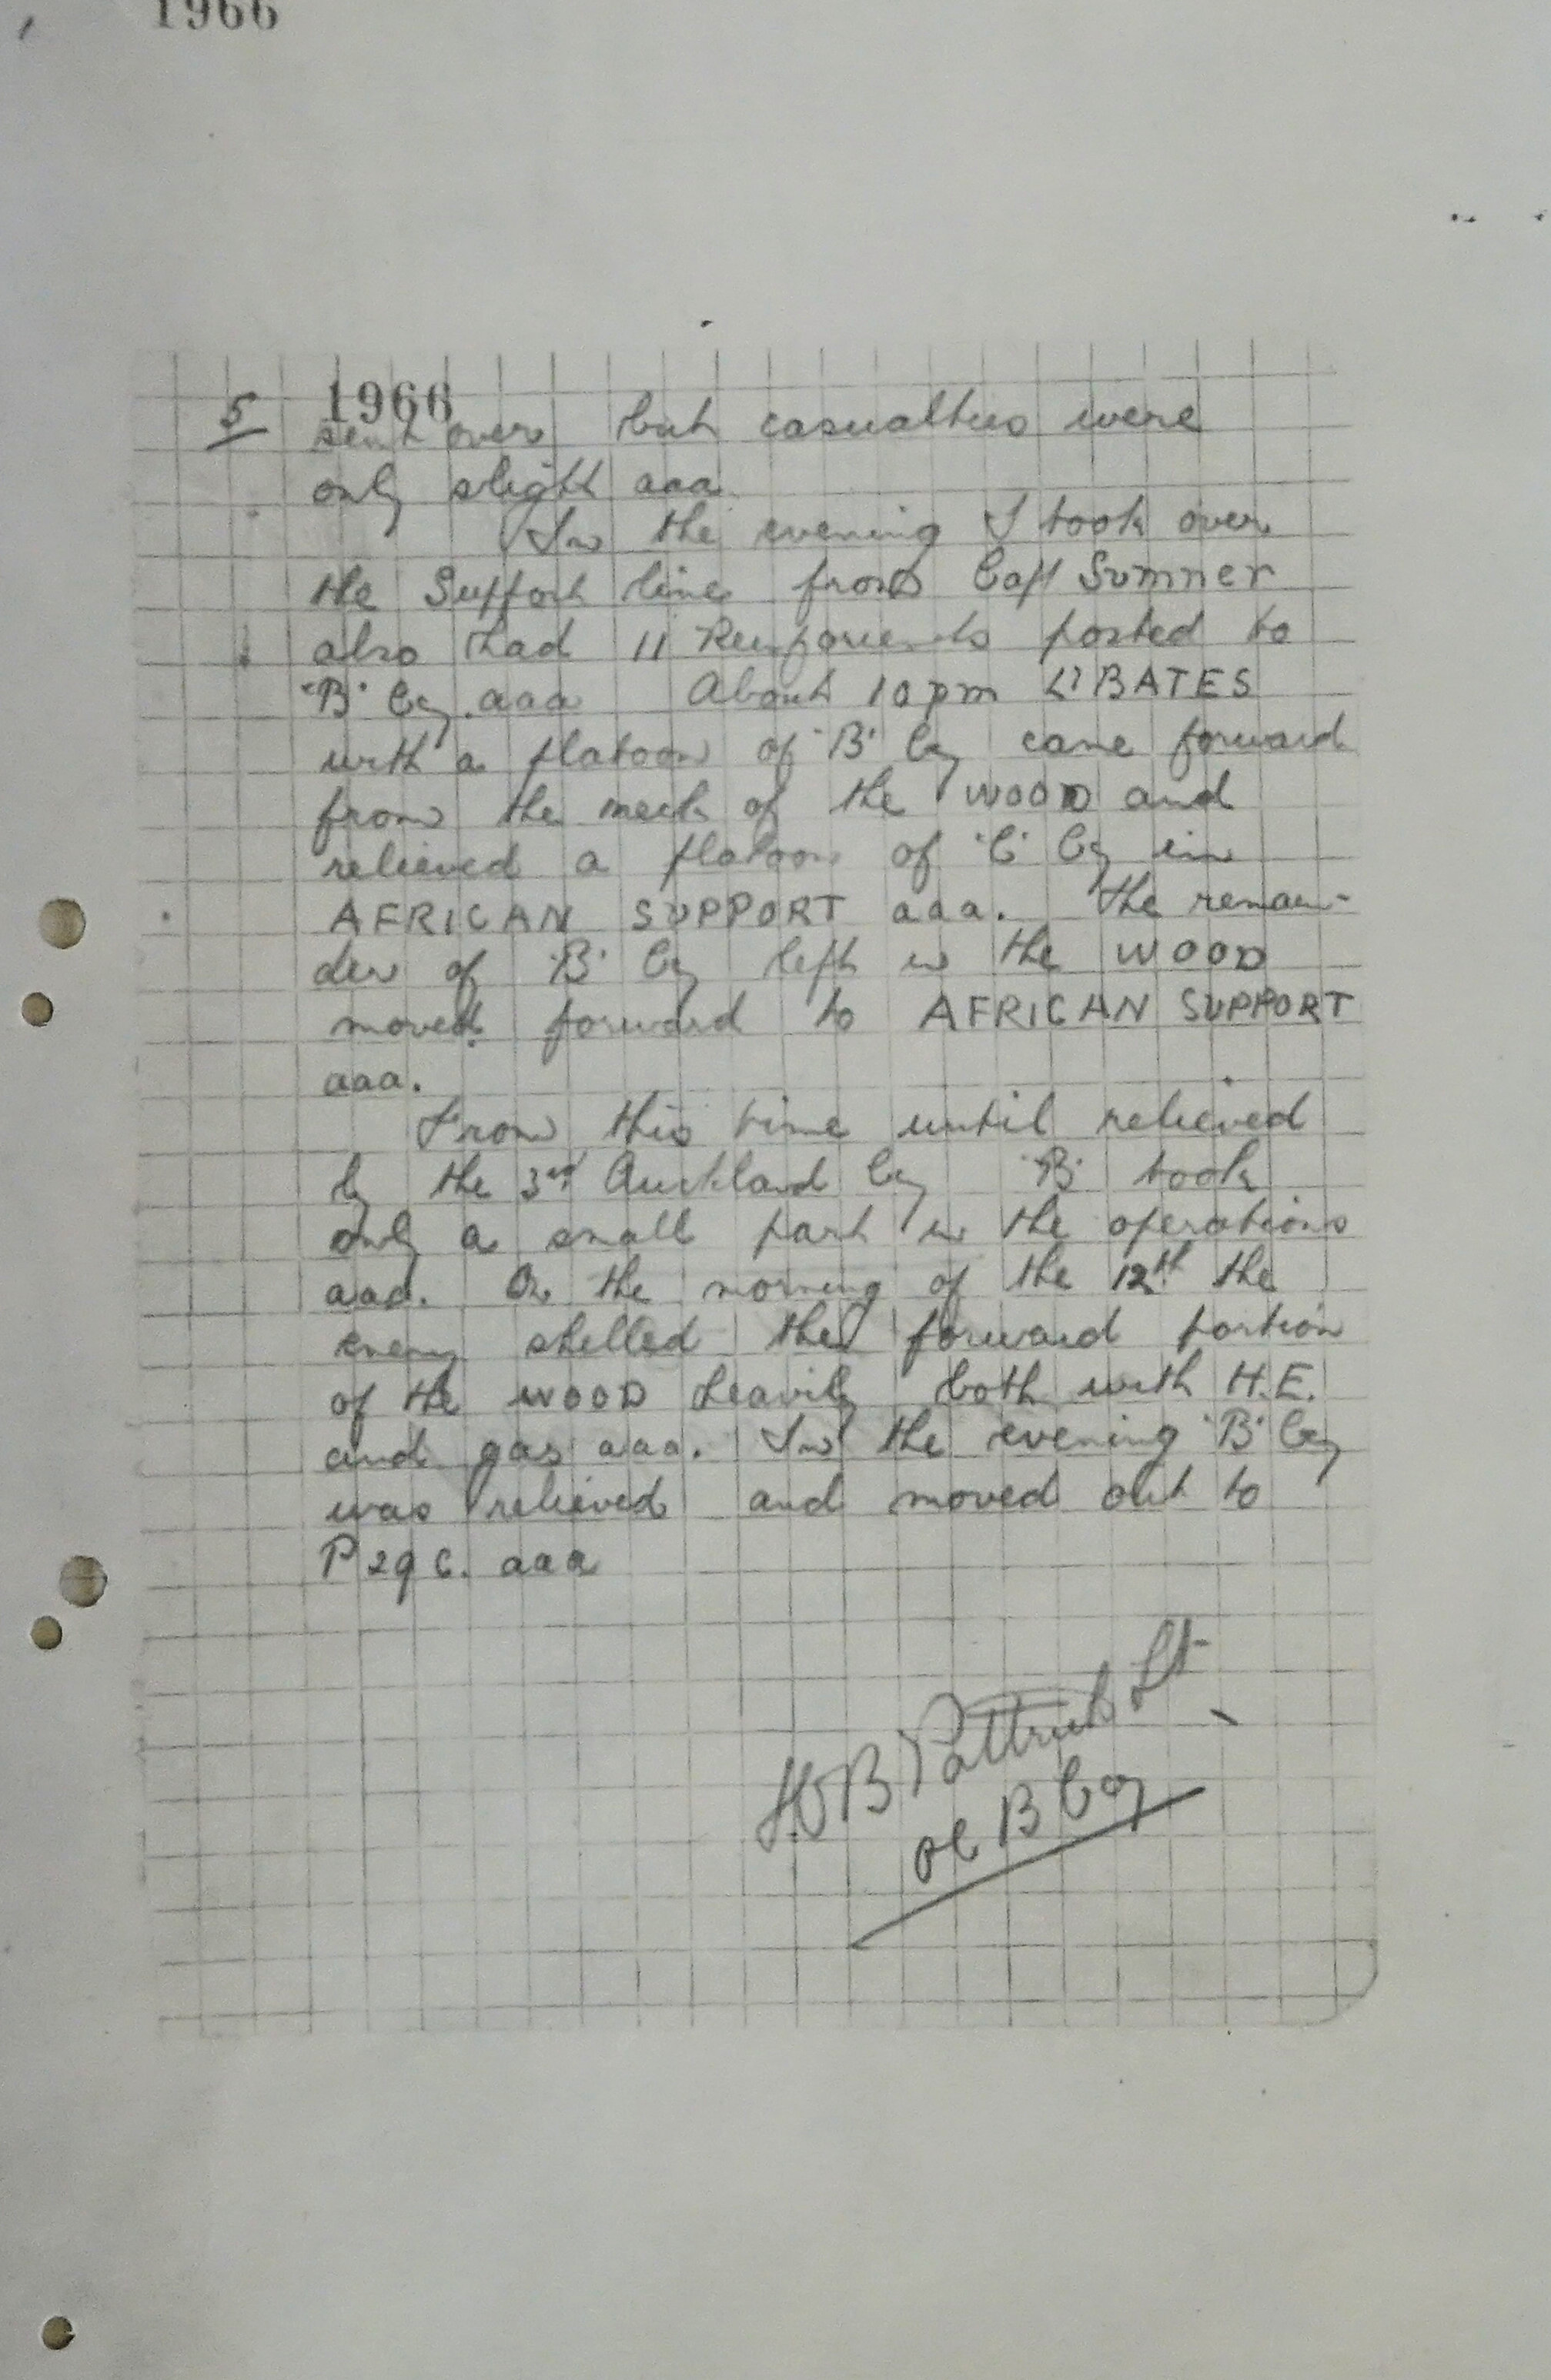 1966
5 1966
sent over but casualties were
only slight aaa
In the evening I took over
the Support line from Capt Sumner
also had 11 Reinforcements posted to
"B" Coy. aaa About 10 pm Lt BATES
with a platoon of "B" Coy came forward
from the neck of the WOOD and
relieved a platoon of "C" Coy in
AFRICAN SUPPORT aaa. The remain-
der of "B" Coy left in the WOOD
moved forward to AFRICAN SUPPORT
aaa.
From this time until relieved
by the 3rd Auckland Coy "B" took
only a small part in the operations
aaa. On the morning of the 12th the
enemy shelled the forward portion
of the WOOD heavily both with H.E.
and gas aaa. In the evening "B" Coy
was relieved and moved out to
P 29 c. aaa
B Lt
OC B Coy